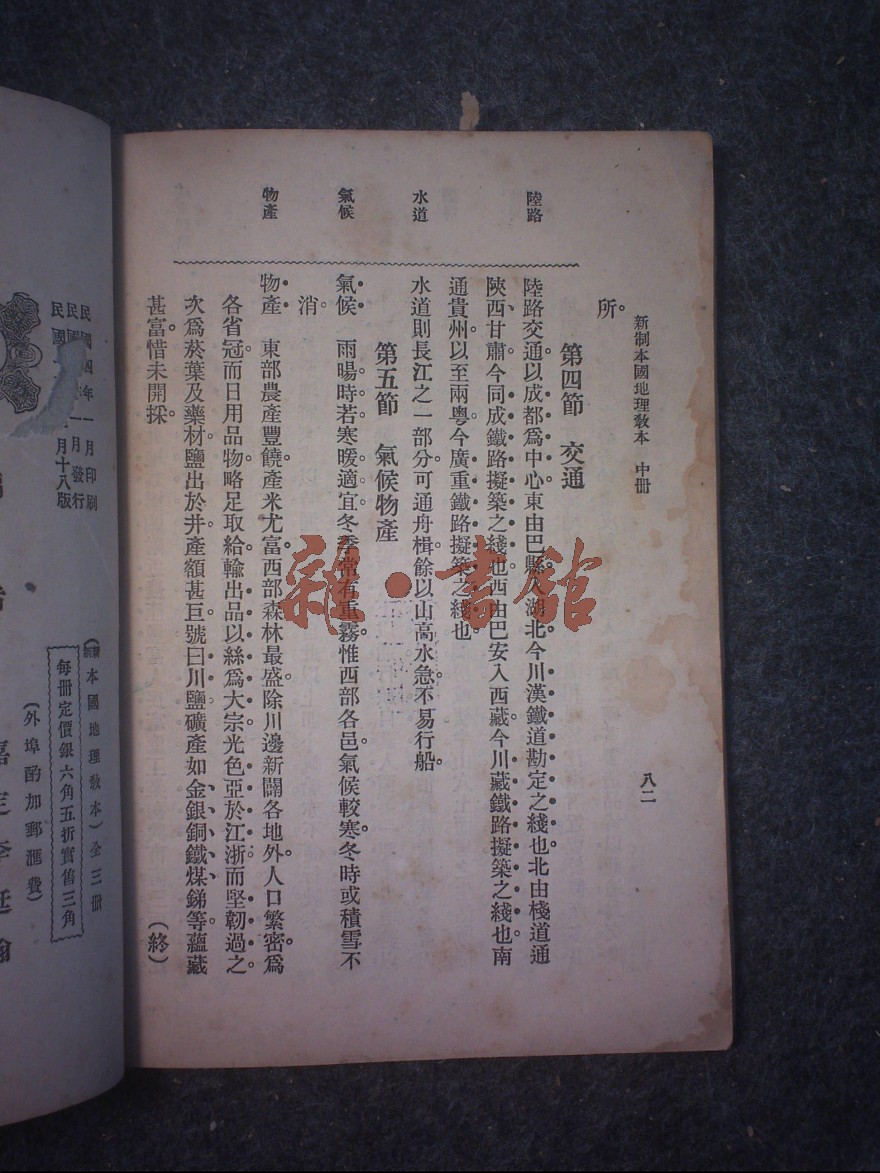 新制本國地理敎本　中冊
八二
所。
第四節　交通
陸路
陸路交通。以成都爲中心。東由巴縣入湖北。今川漢鐵道勘定之綫也。北由棧道通
陝、西、甘肅。今同成鐵路擬築之綫也。西由巴安入西藏。今川藏鐵路擬築之綫也。南
通貴州。以至兩粤。今廣重鐵路擬築之綫也。
水道
水道則長江之一部分。可通舟楫。餘以山高水急。不易行船。
第五節　氣候物產
氣候
氣候　雨暘時若。寒暖適宜。冬季常有重霧。惟西部各邑。氣候較寒。冬時或積雪不
消。
物產
物產　東部農產豐饒。產米尤富。西部森林最盛。除川邊新闢各地外。人口繁密。爲
各省冠。而日用品物。略足取給。輸出品以絲爲大宗。光色亞於江浙。而堅韌過之。
次爲菸葉及藥材。鹽出於井。產額甚巨。號曰川鹽。礦產如金、銀、銅、鐵、煤、銻等。蘊藏
甚富。惜未開採。
（終）
雜·書館
月印刷
月發行
月十八版
本國地理敎本）全三冊
每冊定價銀六角五折實售三角
（外埠酌加郵滙費）